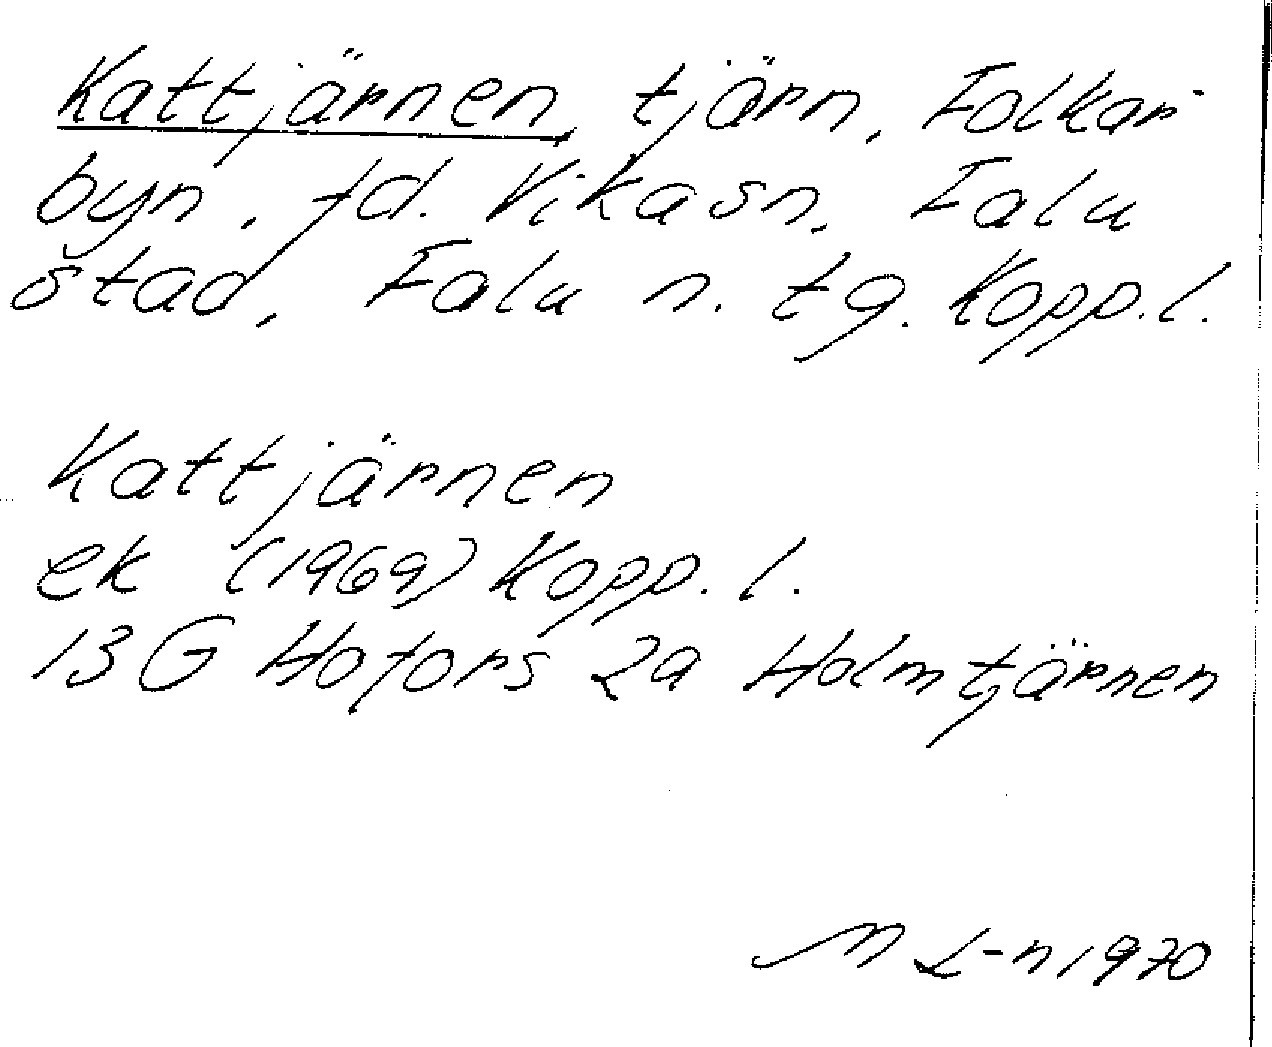 Kattjärnen, tjärn, Folkar-
byn, fd. Vika sn, Falu
stad, Falu n. tg. Kopp. l.
Kattjärnen
ek (1969) Kopp. l.
13 G Hofors 2a Holmtjärnen
M L-n 1970